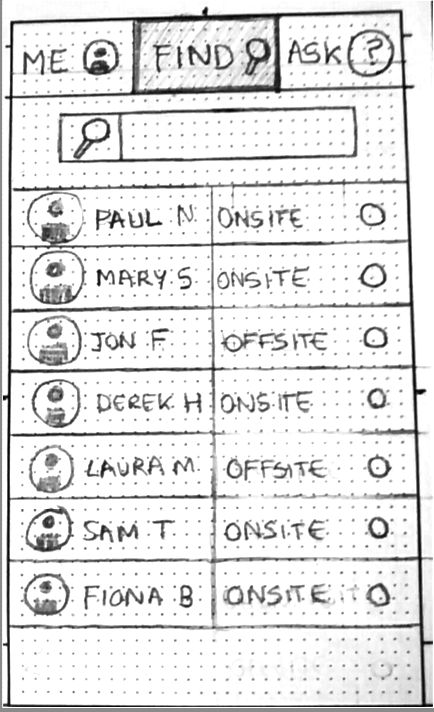 ME FIND ASK ?
PAUL N ONSITE
MARY S ONSITE
JON F OFFSITE
DEREK H ONSITE
LAURA M OFFSITE
SAM T ONSITE
FIONA B ONSITE